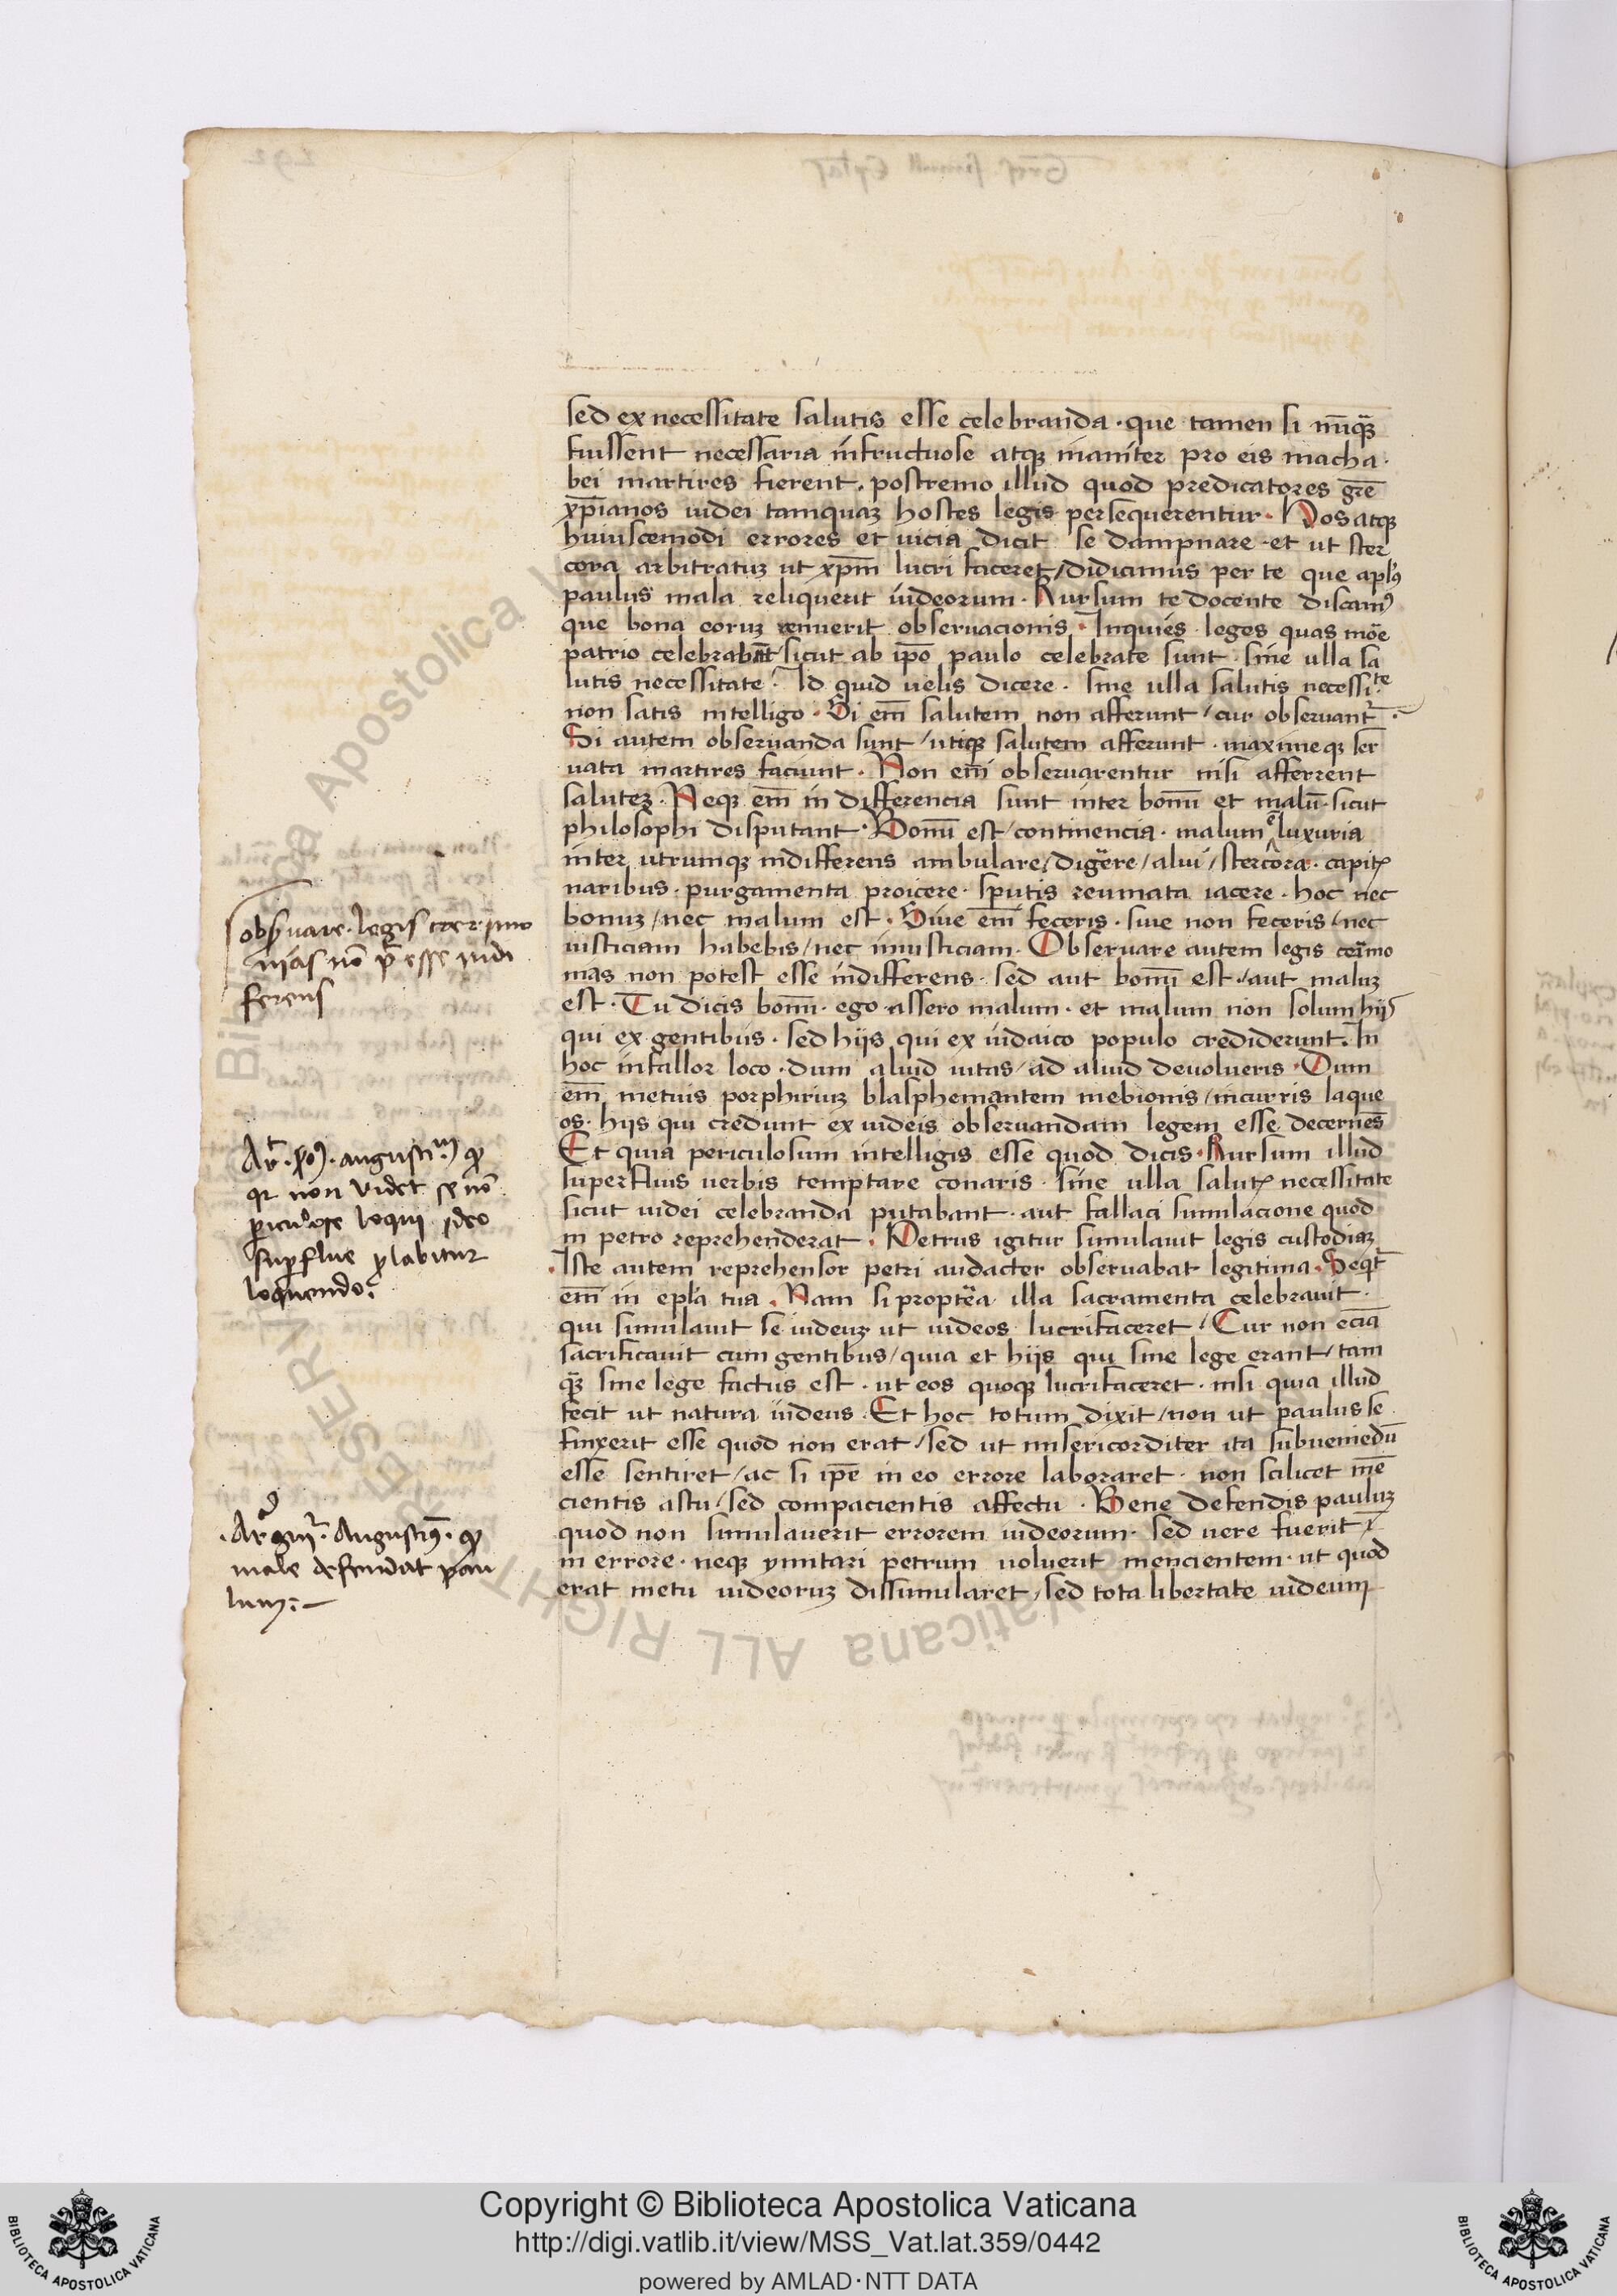 sed ex necessitate salutis esse celebranda · que tamen si nu̅q̈ꝫ
fuissent necessaria infructuose atqꝫ inaniter pro eis macha ·
bei martires fierent · postremo illud quod predicatores gr̅e
xp̅ianos iudei tamquaꝫ hostes legis persequerentur · Hos atqꝫ
huiuscemodi errores et uicia dicit se dampnare · et ut ster
cora arbitratuꝫ ut xp̅m lucri faceret / didicimus per te que apl̅s
paulus mala reliquerit iudeorum · Rursum te docente discamꝰ
que bona eoruꝫ tenuerit obseruacionis · Inquies leges quas mo̅e
patrio celebrabant / sicut ab ip̅o paulo celebrate sunt · sine ulla sa
lutis necessitate · Id quid uelis dicere · sine ulla salutis necessi·te
non satis intelligo · Si em̅ salutem non afferunt / cur obseruant̅ ·
Si autem obseruanda sunt / utiqꝫ salutem afferunt · maximeqꝫ ser
uata martires faciunt · Non em̅ obseruarentur nisi afferrent
saluteꝫ · Neqꝫ em̅ indifferencia sunt inter bonu̅ et malu̅ · sicut
philosophi disputant · Bonu̅ est / continencia · malum e̅ luxuria
inter utrumqꝫ indifferens ambulare / diger̈e / alui / stercora · capit
naribus · purgamenta proicere · sputis reumata iacere · hoc nec
bonuꝫ / nec malum est · Siue em̅ feceris · siue non feceris / nec
iusticiam habebis / nec iniusticiam · Obseruare autem legis ceri̅mo
nias non potest esse indifferens · sed aut bonu̅ est · / aut maluꝫ
est · Tu dicis bonu̅ · ego assero malum · et malum non solum hijs
qui ex gentibus · sed hijs qui ex iudaico populo crediderunt · In
hoc infallor loco · dum aliud uitas / ad aliud deuolueris · Dum
em̅ metuis porphiriuꝫ blasphemantem in ebionis / incurris laque
os · hijs qui credunt ex iudeis obseruandam legem esse decerne̅s
Et quia periculosum intelligis esse quod dicis · Rursum illud
superfluis uerbis temptare conaris · sine ulla salut necessitate
sicut iudei celebranda putabant · aut fallaci simulacione quod
in petro reprehenderat · Petrus igitur simulauit legis custodiaꝫ
· Iste autem reprehensor petri audacter obseruabat legitima · Seqt̅
em̅ in epl̅a tua · Nam si propter̈a illa sacramenta celebrauit ·
qui simulauit se iudeuꝫ ut iudeos lucrifaceret / Cur non ecia̅
sacrificauit cum gentibus / quia et hijs qui sine lege erant / tam
q̈ꝫ sine lege factus est · ut eos quoqꝫ lucrifaceret · nisi quia illud
fecit ut natura iudeus · Et hoc totum dixit / non ut paulus se
finxerit esse quod non erat / sed ut misericorditer ita subueniedu̅
esse sentiret / ac si ip̅e in eo errore laboraret · non scilicet me̅
cientis astu / sed compacientis affectu · Bene defendis pauluꝫ
quod non simulauerit errorem iudeorum · sed uere fuerit /
in errore · neqꝫ ymitari petrum uoluerit mencientem · ut quod
erat metu iudeoruꝫ dissimularet / sed tota libertate iudeum
obseruare · legis
nias no̅ esse indi
ferens
augusti
non videt se no̅
loqui ideo
labitur
loquendo
Augusti
male defendat pau
lum
Copyright © Biblioteca Apostolica Vaticana
http://digi.vatlib.it/view/MSS_Vat.lat.359/0442
powered by AMLAD·NTT DATA
BIBLIOTECA APOSTOLICA VATICANA
BIBLIOTECA APOSTOLICA VATICANA